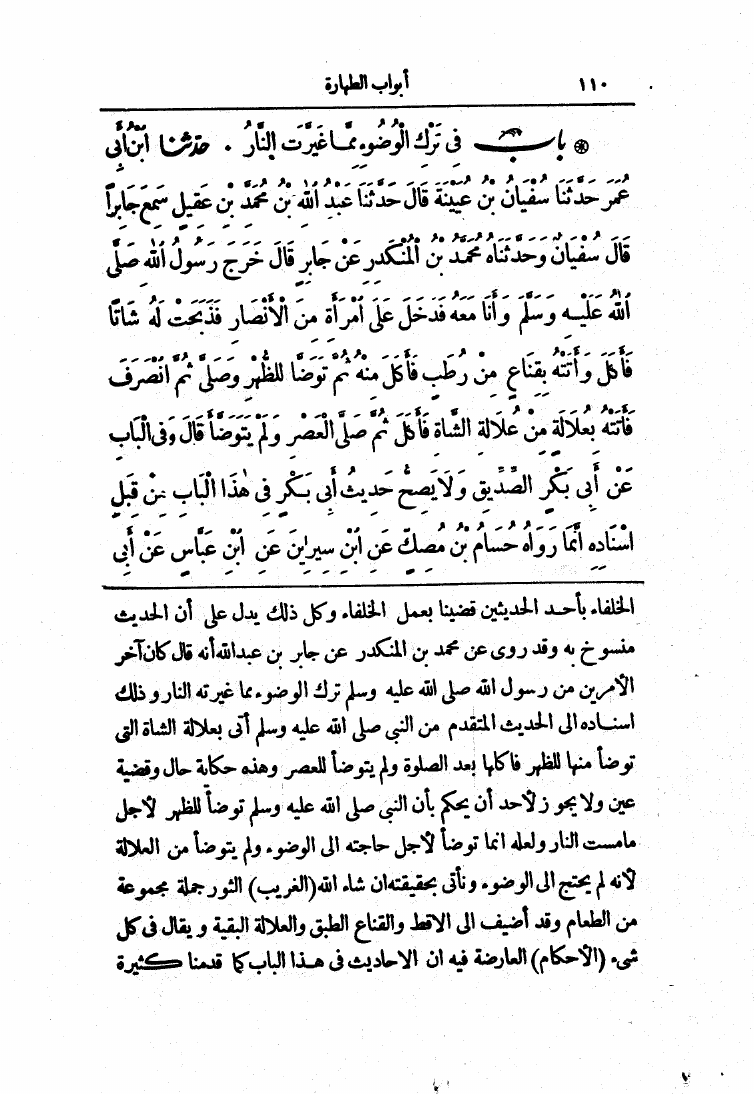 ١١٠ أبواب الطهارة
❊ بابٌ فِي تَرْكِ الْوُضُوءِ مِمَّا غَيَّرَتِ النَّارُ . حدثنا ابْنُ أَبِي
عُمَرَ حَدَّثَنَا سُفْيَانُ بْنُ عُيَيْنَةَ قَالَ حَدَّثَنَا عَبْدُ اللهِ بْنُ مُحَمَّدِ بْنِ عَقِيلٍ سَمِعَ جَابِرًا
قَالَ سُفْيَانُ وَحَدَّثَنَاهُ مُحَمَّدُ بْنُ الْمُنْكَدِرِ عَنْ جَابِرٍ قَالَ خَرَجَ رَسُولُ اللهِ صَلَّى
اللهُ عَلَيْهِ وَسَلَّمَ وَأَنَا مَعَهُ فَدَخَلَ عَلَى امْرَأَةٍ مِنَ الْأَنْصَارِ فَذَبَحَتْ لَهُ شَاتًا
فَأَكَلَ وَأَتَتْهُ بِقِنَاعٍ مِنْ رُطَبٍ فَأَكَلَ مِنْهُ ثُمَّ تَوَضَّأَ لِلظُّهْرِ وَصَلَّى ثُمَّ انْصَرَفَ
فَأَتَتْهُ بِعُلَالَةٍ مِنْ عُلَالَةِ الشَّاةِ فَأَكَلَ ثُمَّ صَلَّى الْعَصْرَ وَلَمْ يَتَوَضَّأْ قَالَ وَفِى الْبَابِ
عَنْ أَبِى بَكْرٍ الصِّدِّيقِ وَلَا يَصِحُّ حَدِيثُ أَبِى بَكْرٍ فِى هٰذَا الْبَابِ مِنْ قِبَلِ
اسْنَادِهِ انَّمَا رَوَاهُ حُسَامُ بْنُ مُصِكٍّ عَنِ ابْنِ سِيرِينَ عَنِ ابْنِ عَبَّاسٍ عَنْ أَبِى
الخلفاء بأحد الحديثين قضينا بعمل الخلفاء وكل ذلك يدل على أن الحديث
منسوخ به وقد روى عن محمد بن المنكدر عن جابر بن عبدالله أنه قال كان آخر
الأمرين من رسول الله صلى الله عليه وسلم ترك الوضوء مما غيرته النار وذلك
اسناده الى الحديث المتقدم من النبى صلى الله عليه وسلم أتى بعلالة الشاة التى
توضأ منها للظهر فاكلها بعد الصلوة ولم يتوضأ للعصر وهذه حكاية حال وقضية
عين ولا يجوز لأحد أن يحكم بأن النبى صلى الله عليه وسلم توضأ للظهر لأجل
مامست النار ولعله انما توضأ لأجل حاجته الى الوضوء ولم يتوضأ من العلالة
لأنه لم يحتج الى الوضوء ونأتى بحقيقته ان شاء الله (الغريب) الثور جملة مجموعة
من الطعام وقد أضيف الى الاقط والقناع الطبق والعلالة البقية ويقال فى كل
شىء (الأحكام) العارضة فيه ان الاحاديث فى هذا الباب كما قدمنا كثيرة